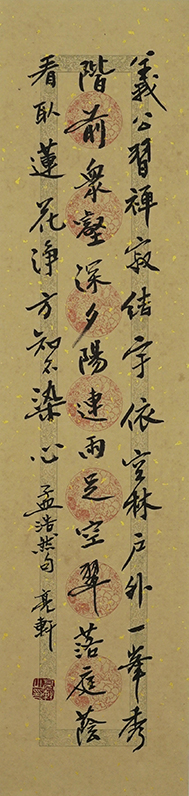 義公習禪寂結宇依空林戶外一峯秀
階前衆壑深夕陽連雨足空翠落庭蔭
看取蓮花淨方知不染心 孟浩然句 亮軒